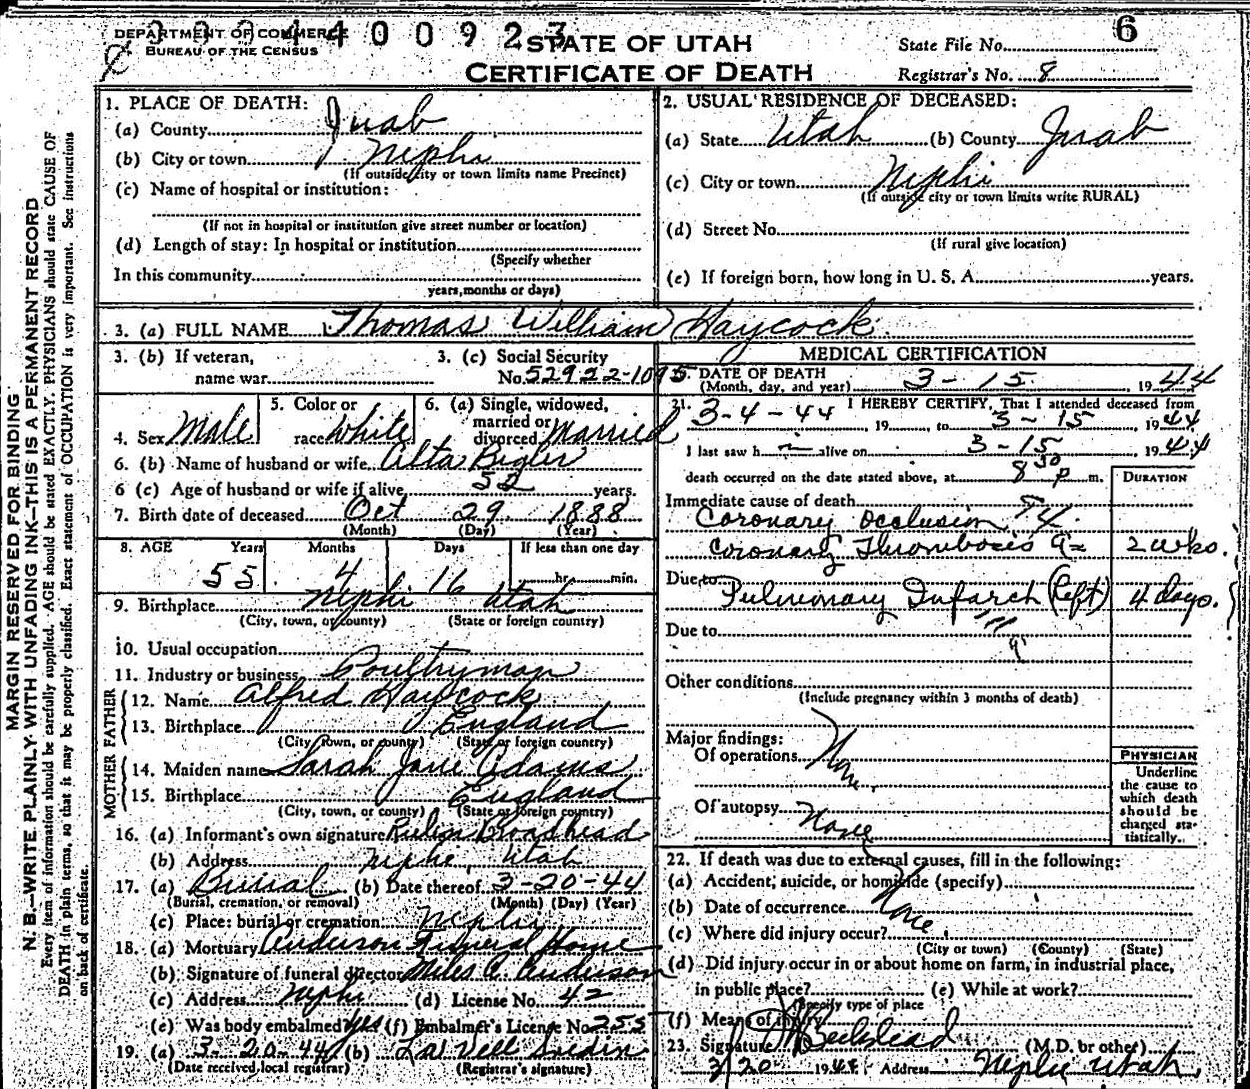 DEPARTMENT OF COMMERCE
BUREAU OF THE CENSUS
STATE OF UTAH
CERTIFICATE OF DEATH
6
State File No.
Registrar's No. 8
MARGIN RESERVED FOR BINDING
N. B.—WRITE PLAINLY WITH UNFADING INK—THIS IS A PERMANENT RECORD
Every item of information should be carefully supplied. AGE should be stated EXACTLY. PHYSICIANS should state CAUSE OF
DEATH in plain terms, so that it may be properly classified. Exact statement of OCCUPATION is very important. See instructions
on back of certificate.
1. PLACE OF DEATH:
(a) County Juab
(b) City or town Nephi
(If outside city or town limits name Precinct)
(c) Name of hospital or institution:
(If not in hospital or institution give street number or location)
(d) Length of stay: In hospital or institution
(Specify whether
In this community
years, months or days)
2. USUAL RESIDENCE OF DECEASED:
(a) State Utah (b) County Juab
(c) City or town Nephi
(If outside city or town limits write RURAL)
(d) Street No.
(If rural give location)
(e) If foreign born, how long in U. S. A. years.
3. (a) FULL NAME Thomas William Haycock
3. (b) If veteran,
name war
3. (c) Social Security
No. 52922-1095
4. Sex Male
5. Color or
race White
6. (a) Single, widowed,
married or
divorced Married
6. (b) Name of husband or wife Alta Bigler
6 (c) Age of husband or wife if alive 52 years.
7. Birth date of deceased Oct 29 1888
(Month) (Day) (Year)
8. AGE Years Months Days If less than one day
55 4 16 hr. min.
9. Birthplace Nephi Utah
(City, town, or county) (State or foreign country)
10. Usual occupation
11. Industry or business Poultryman
FATHER
12. Name Alfred Haycock
13. Birthplace England
(City, town, or county) (State or foreign country)
MOTHER
14. Maiden name Sarah Jane Adams
15. Birthplace England
(City, town, or county) (State or foreign country)
16. (a) Informant's own signature Broadhead
(b) Address Nephi, Utah
17. (a) Burial (b) Date thereof 3-20-44
(Burial, cremation, or removal) (Month) (Day) (Year)
(c) Place: burial or cremation Nephi
18. (a) Mortuary Anderson Funeral Home
(b) Signature of funeral director Miles A. Anderson
(c) Address Nephi (d) License No. 42
(e) Was body embalmed Yes (f) Embalmer's License No. 255
19. (a) 3-20-44 (b) La Vell
(Date received local registrar) (Registrar's signature)
MEDICAL CERTIFICATION
DATE OF DEATH
(Month, day, and year) 3-15 1944
21. I HEREBY CERTIFY, That I attended deceased from
3-4-44 19 , to 3-15 1944
I last saw h i alive on 3-15 1944
death occurred on the date stated above, at 8 30 P m.
DURATION
Immediate cause of death
Coronary Occlusion
Coronary Thrombosis 2 wks.
Due to
Pulmonary Infarch (left) 4 days.
Due to
Other conditions
(Include pregnancy within 3 months of death)
Major findings:
Of operations None
Of autopsy None
PHYSICIAN
Underline
the cause to
which death
should be
charged sta-
tistically.
22. If death was due to external causes, fill in the following:
(a) Accident, suicide, or homicide (specify)
(b) Date of occurrence None
(c) Where did injury occur?
(City or town) (County) (State)
(d) Did injury occur in or about home on farm, in industrial place,
in public place? (e) While at work?
(Specify type of place
(f) Means of injury
23. Signature Beckstead (M.D. or other)
3/20 1944 Address Nephi Utah